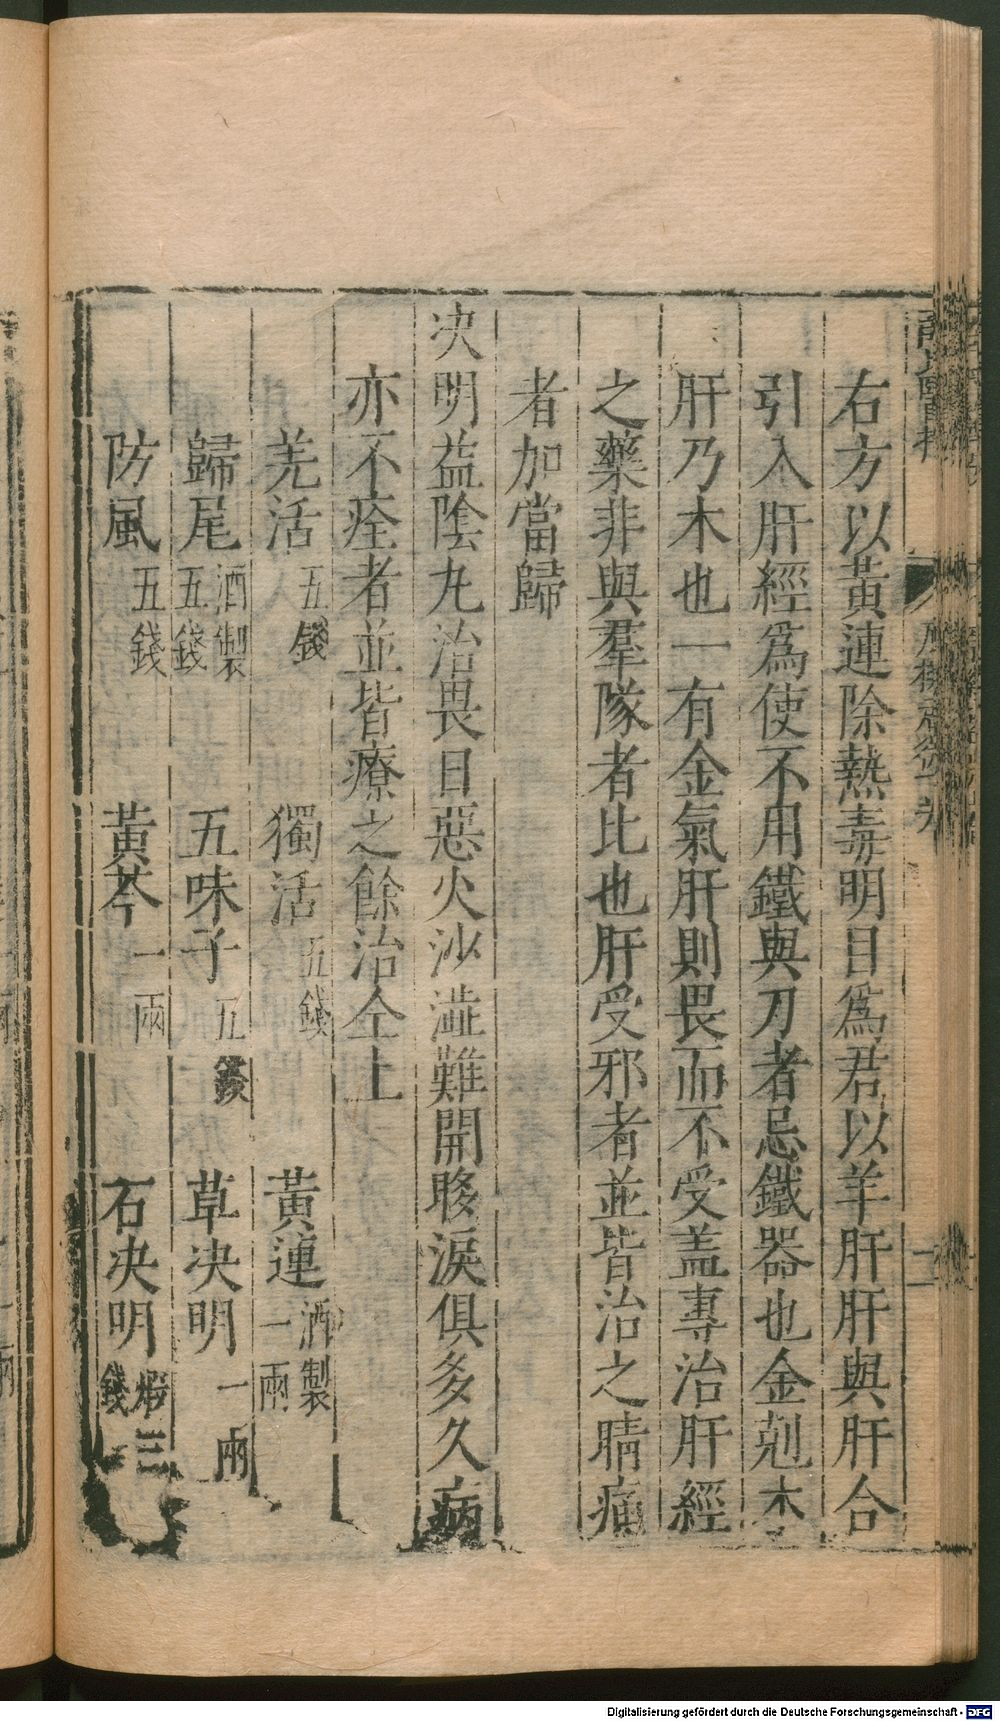 右方以黃連除熱毒明目爲君以羊肝肝與肝合
引入肝經爲使不用鐵與刀者忌鐵器也金剋木
肝乃木也一有金氣肝則畏而不受盖專治肝經
之藥非與羣隊者比也肝受邪者並皆治之睛痛
者加當歸
决明益陰九治畏日惡火沙澁難開眵淚俱多久病
亦不痊者並皆療之餘治仝上
羌活五錢 獨活五錢 黃連酒製一兩
歸尾酒製五錢 五味子五錢 草决明一兩
防風五錢 黃芩一兩 石决明煆三錢
Digitalisierung gefördert durch die Deutsche Forschungsgemeinschaft - DFG